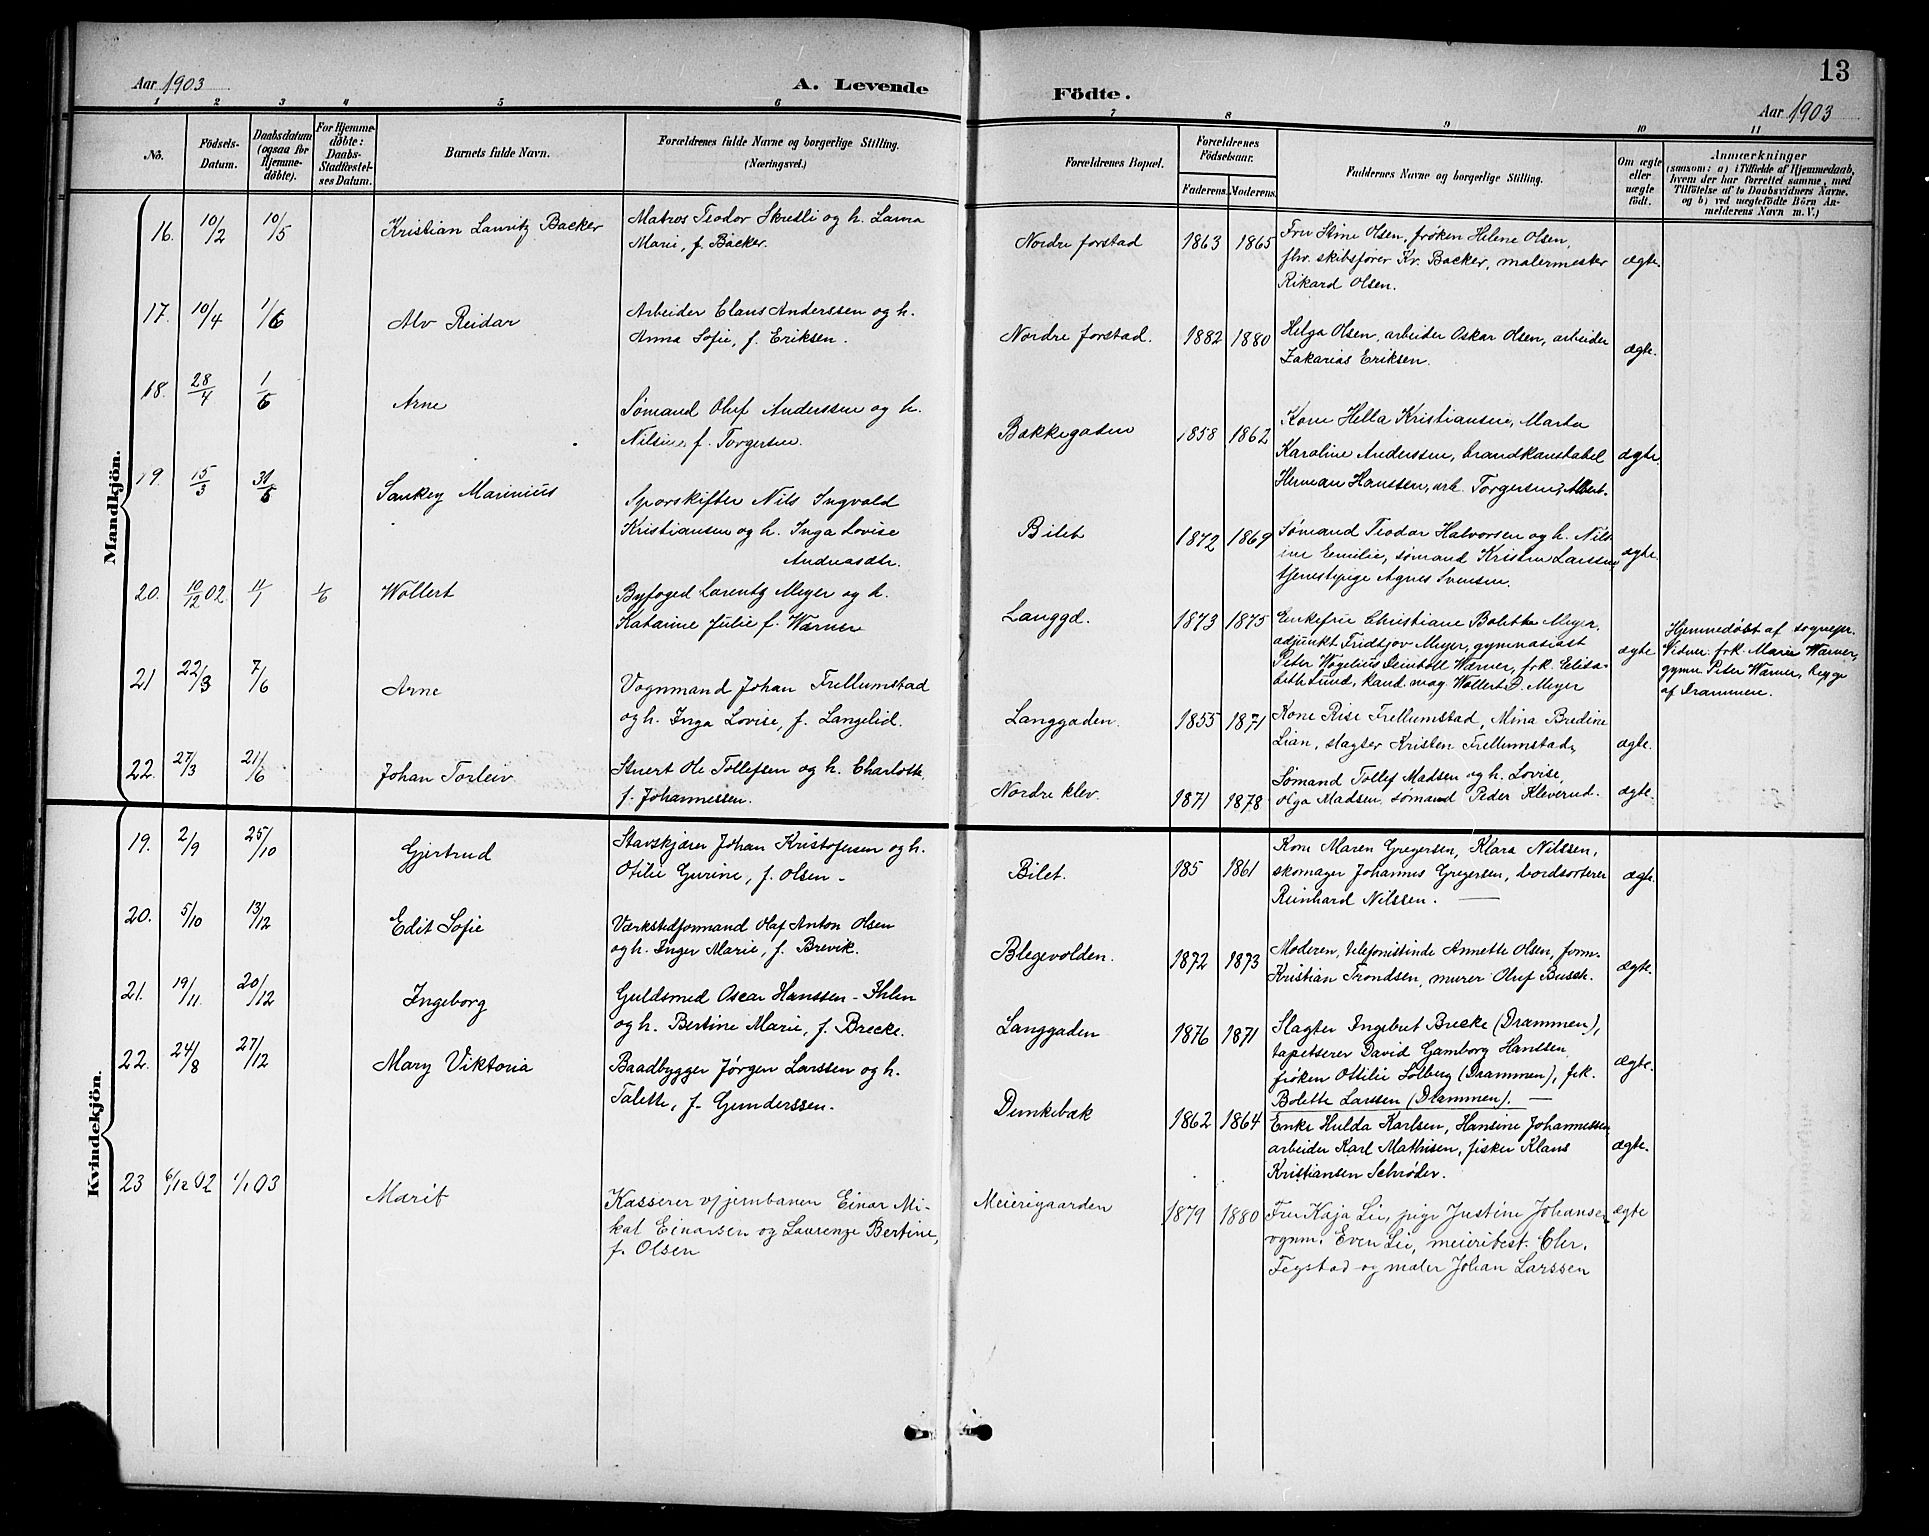 Aar 1903
A. Levende
Födte.
13
Aar 1903
1 2 3 4 5 6 7 8 9 10 11
No.
Födsels-
Datum.
Daabsdatum
(ogsaa for
Hjemme-
døbte).
For Hjemme-
døbte:
Daabs-
Stadfæstel-
ses Datum.
Barnets fulde Navn.
Forældrenes fulde Navne og borgerlige Stilling.
(Næringsvei.)
Forældrenes Bopæl.
Forældrenes
Födselsaar.
Faderens. Moderens.
Faddernes Navne og borgerlige Stilling.
Om ægte
eller
uægte
födt.
Anmærkninger
(saasom: a) i Tilfælde af Hjemmedaab,
hvem der har forrettet samme, med
Tilföielse af to Daabsvidners Navne.
og b) ved uægtefödte Börn An-
melderens Navn m. V.)
Mandkjön.
16. 10/2 10/5 Kristian Lauritz Backer
Matros Teodor Skretli og h. Laura
Marie, f. Backer.
Nordre forstad 1863 1865
Fru Stine Olsen, frøken Helene Olsen,
fhv. skibsfører Kr. Backer, malermester
Rikard Olsen.
ægte.
17. 10/4 1/6 Alv Reidar
Arbeider Claus Anderssen og h.
Anna Sofie, f. Eriksen.
Nordre forstad. 1882 1880
Helga Olsen, arbeider Oskar Olsen, arbeider
Zakarias Eriksen.
ægte.
18. 28/4 1/6 Arne
Sømand Oluf Anderssen og h.
Nilsine, f. Torgersen.
Bakkegaden 1858 1862
Kone Hella Kristiansen, Marta
Karoline Anderssen, brandkonstabel
Herman Hanssen, arb. Torgersen, Albert.
ægte.
19. 15/3 31/5 Sankey Marinius
Sporskifter Nils Ingvald
Kristiansen og h. Inga Lovise
Andreasdtr.
Bilet 1872 1869
Sømand Teodor Halvorsen og h. Nils
ine Emilie, sømand Kristen Larssen,
tjenestepige Agnes Svensen.
ægte.
20. 10/12 02. 11/1 1/6 Wollert
Byfoged Lorentz Meyer og h.
Katarine Julie f. Wærner
Langgd. 1873 1875
Enkefrue Christiane Bolette Meyer,
adjunkt Fridtjov Meyer, gymnasiast
Peter Vogelius Deinboll Wærner, frk. Elisa-
beth Lund, kand. mag Wollert D. Meyer
ægte
Hjemmedøbt af sognepr.
Vidner: frk. Marie Wærner,
gymn. Peter Wærner, begge
af Drammen.
21 22/3 7/6 Arne
Vognmand Johan Frellumstad
og h. Inga Lovise, f. Langelid.
Langgaden. 1855 1871
Kone Rise Frellumstad, Mina Bredine
Lian, slagter Kristen Frellumstad,
ægte.
22. 27/3 21/6 Johan Torleiv.
Stuert Ole Tollefsen og h. Charlotte
f. Johannessen.
Nordre klev. 1871 1878
Sømand Tollef Madsen og h. Lovise,
Olga Madsen, sømand Peder Kleverud.
ægte.
Kvindekjön.
19. 2/9 25/10 Gjertrud
Stavskjærer Johan Kristofersen og h.
Otilie Gurine, f. Olsen -
Bilet. 185 1861
Kone Maren Gregersen, Klara Nilssen,
skomager Johannes Gregersen, bordsorterer
Reinhard Nilssen. —
ægte.
20. 5/10 13/12 Edit Sofie
Værkstedformand Olaf Anton Olsen
og h. Inger Marie, f. Brevik.
Blegevolden. 1872 1873
Moderen, telefonistinde Annette Olsen, form.
Kristian Trondsen, murer Oluf Busch.
ægte.
21. 19/11 20/12 Ingeborg
Guldsmed Oscar Hanssen-Ihlen
og h. Bertine Marie, f. Brecke.
Langgaden 1876 1871
Slagter Ingebret Brecke (Drammen),
tapetserer David Gamborg Hanssen,
frøken Ottilie Solberg (Drammen), frk.
Bolette Larssen (Drammen). —
ægte.
22. 24/8 27/12 Mary Viktoria
Baadbygger Jørgen Larssen og h.
Talette, f. Gunderssen.
Dunkebæk 1862 1864
Enke Hulda Karlsen, Hansine Johannessen,
arbeider Karl Mathisen, fisker Klaus
Kristiansen Schrøder.
ægte.
23 6/12 02 1/1 03 Marit
Kasserer v/jernbanen Einar Mi-
kal Einarsen og Laurenze Bertine,
f. Olsen
Meierigaarden 1879 1880
Fru Kaja Lie, pige Justine Johansen,
vognm. Even Lie, meieribest. Chr.
Fegstad og maler Johan Larssen
ægte